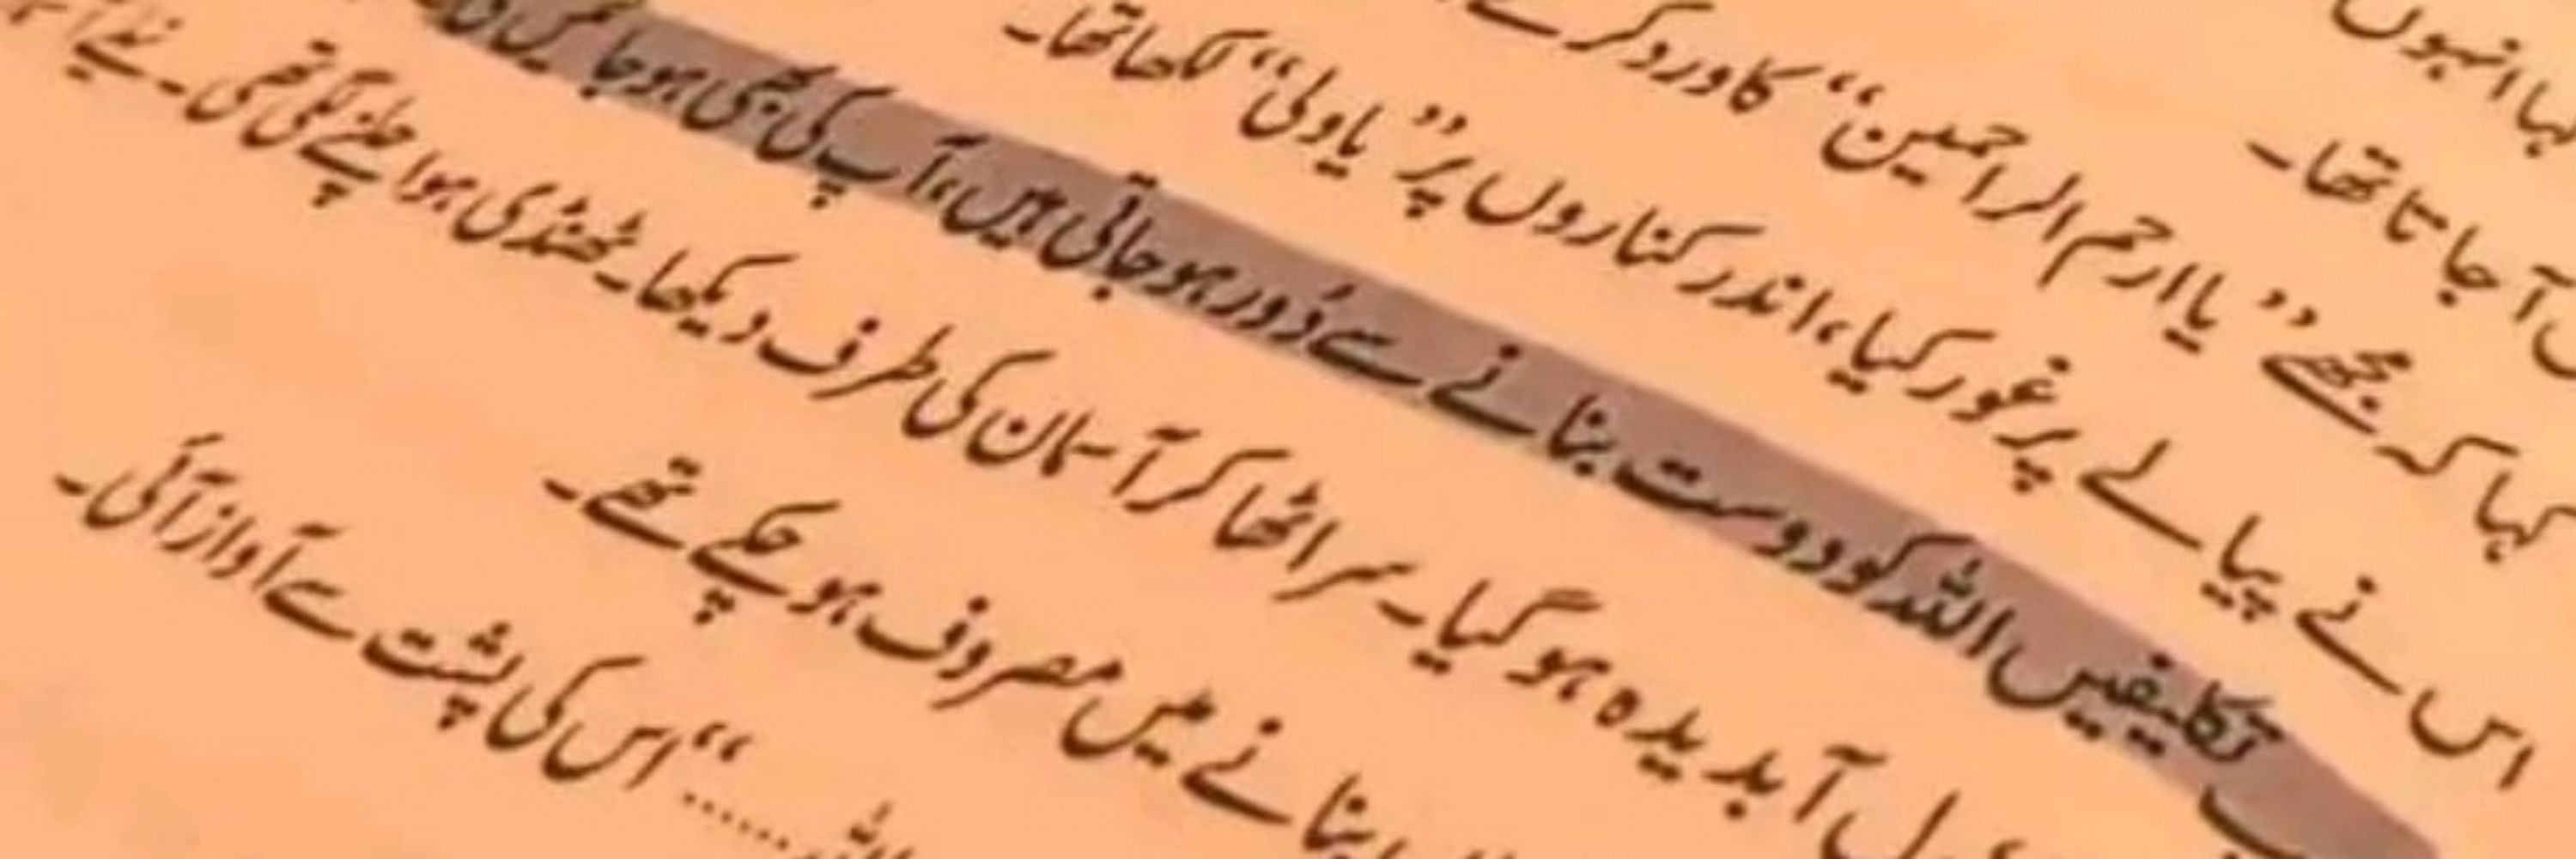 کہا انہوں
آ جاتا تھا۔
کہا کہ مجھے ”یا ارحم الراحمین“ کا ورد کرنے
اس نے پیالے پر غور کیا، اندر کناروں پر ”یا ولی“ لکھا تھا۔
تکالیفیں اللہ کو دوست بنانے سے دُور ہو جاتی ہیں، آپ کی بھی ہو جائیں
آبدیدہ ہو گیا۔ سر اٹھا کر آسمان کی طرف دیکھا۔ ٹھنڈی ہوا چلنے لگی تھی۔ نیلے
بنانے میں مصروف ہو چکے تھے۔
اللہ......“ اس کی پشت سے آواز آئی۔